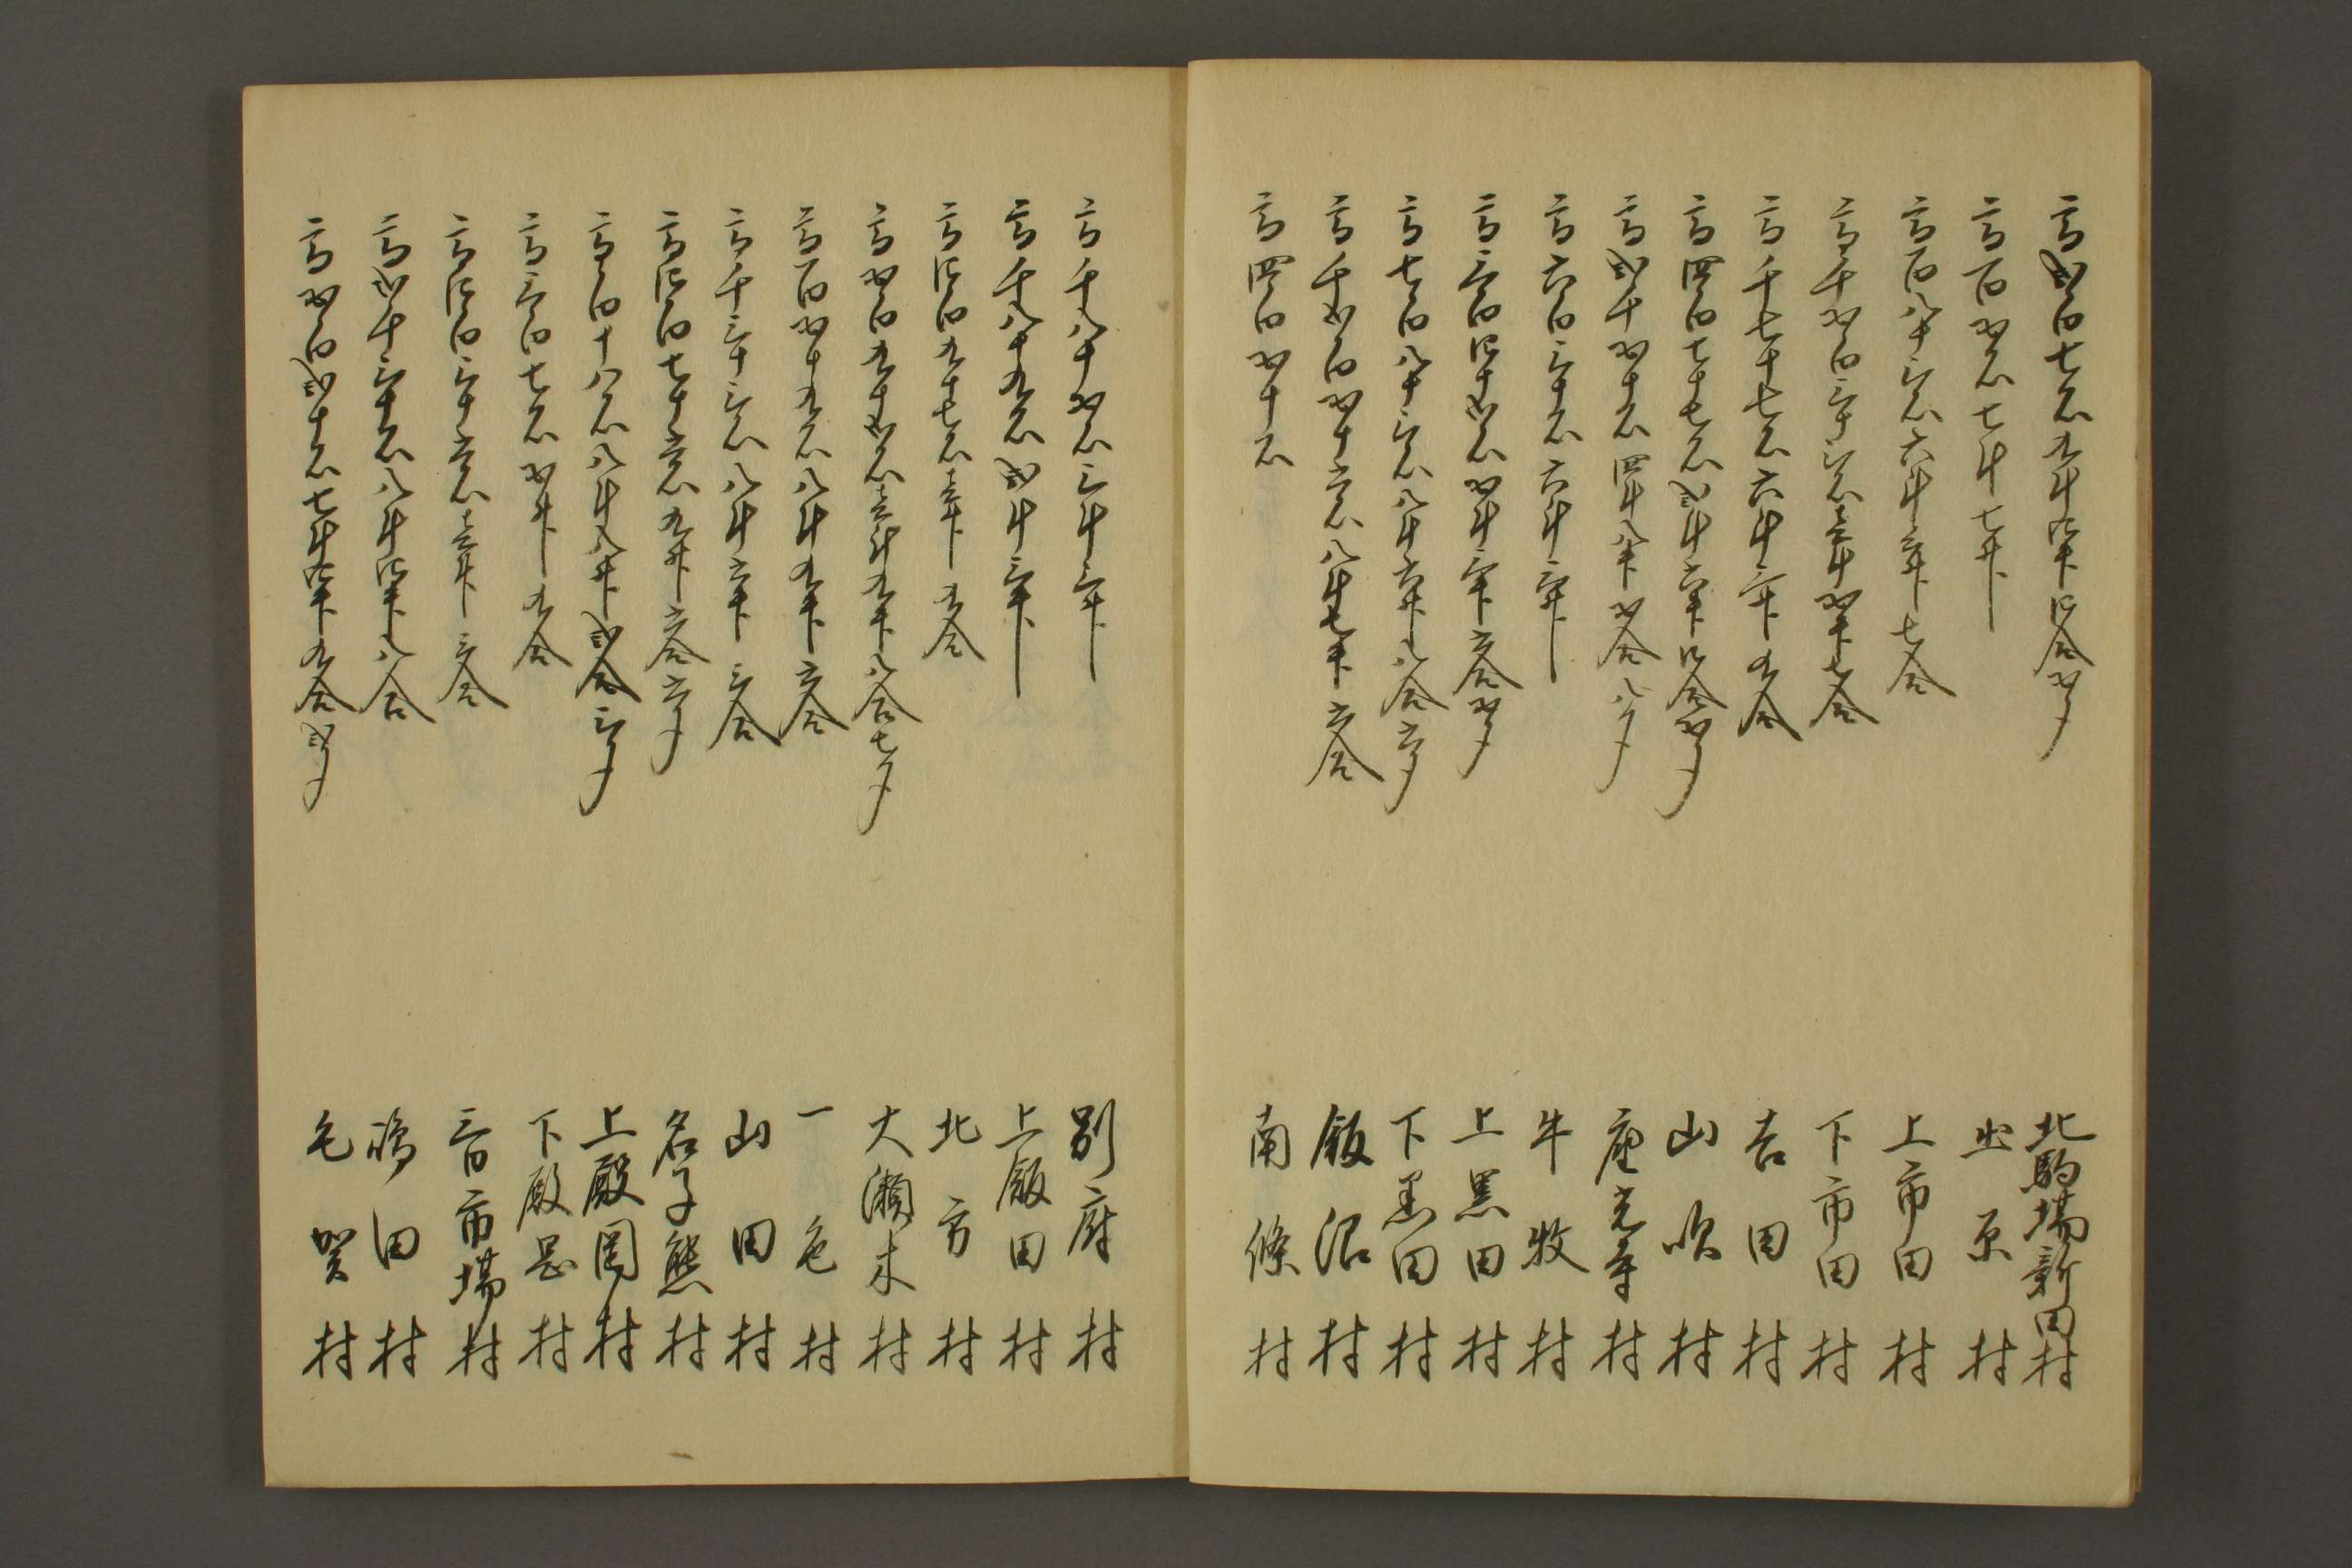 高弐百七石九斗四升四合五夕 北駒場新田村
高百五石七斗七升 出原村
高百八十三石六斗六升七合 上市田村
高千五百三十六石壱斗五升七合 下市田村
高千七十七石六斗三升九合 吉田村
高四百七十七石弐斗六升四合五夕 山吹村
高弐千五十石四斗八升五合八夕 座光寺村
高六百三十石六斗六升 牛牧村
高三百四十弐石五斗三升六合五夕 上黒田村
高七百八十三石八斗六升八合六夕 下黒田村
高千弐百五十六石八斗七升六合 飯沼村
高四百五十石 南條村
高千八十五石三斗三升 別府村
高千八十九石弐斗三升 上飯田村
高四百九十七石壱升九合 北方村
高五百九十弐石壱斗九升八合七夕 大瀬木村
高百五十九石八斗九升六合 一色村
高千三十三石八斗六升三合 山田村
高四百七十六石九升六合六夕 名子熊村
高百十八石八斗八升弐合三夕 上殿岡村
高三百七石五升九合 下殿岡村
高四百三十六石壱升三合 三日市場村
高弐千三十石八斗四升八合 嶋田村
高五百弐十石七斗四升九合弐夕 毛賀村